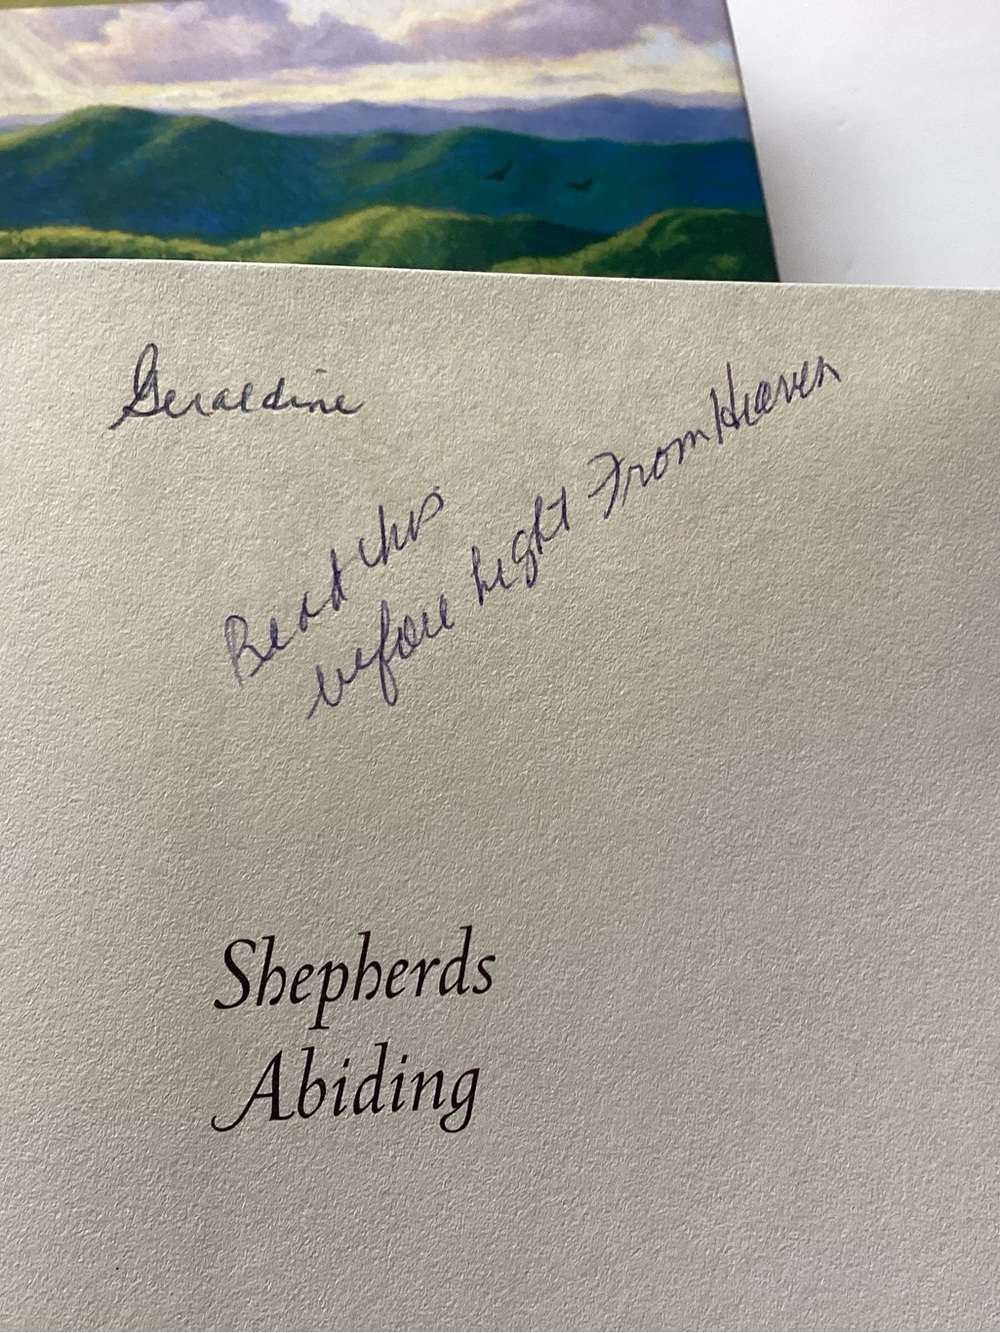 Geraldine
Read this
before Light From Heaven
Shepherds
Abiding